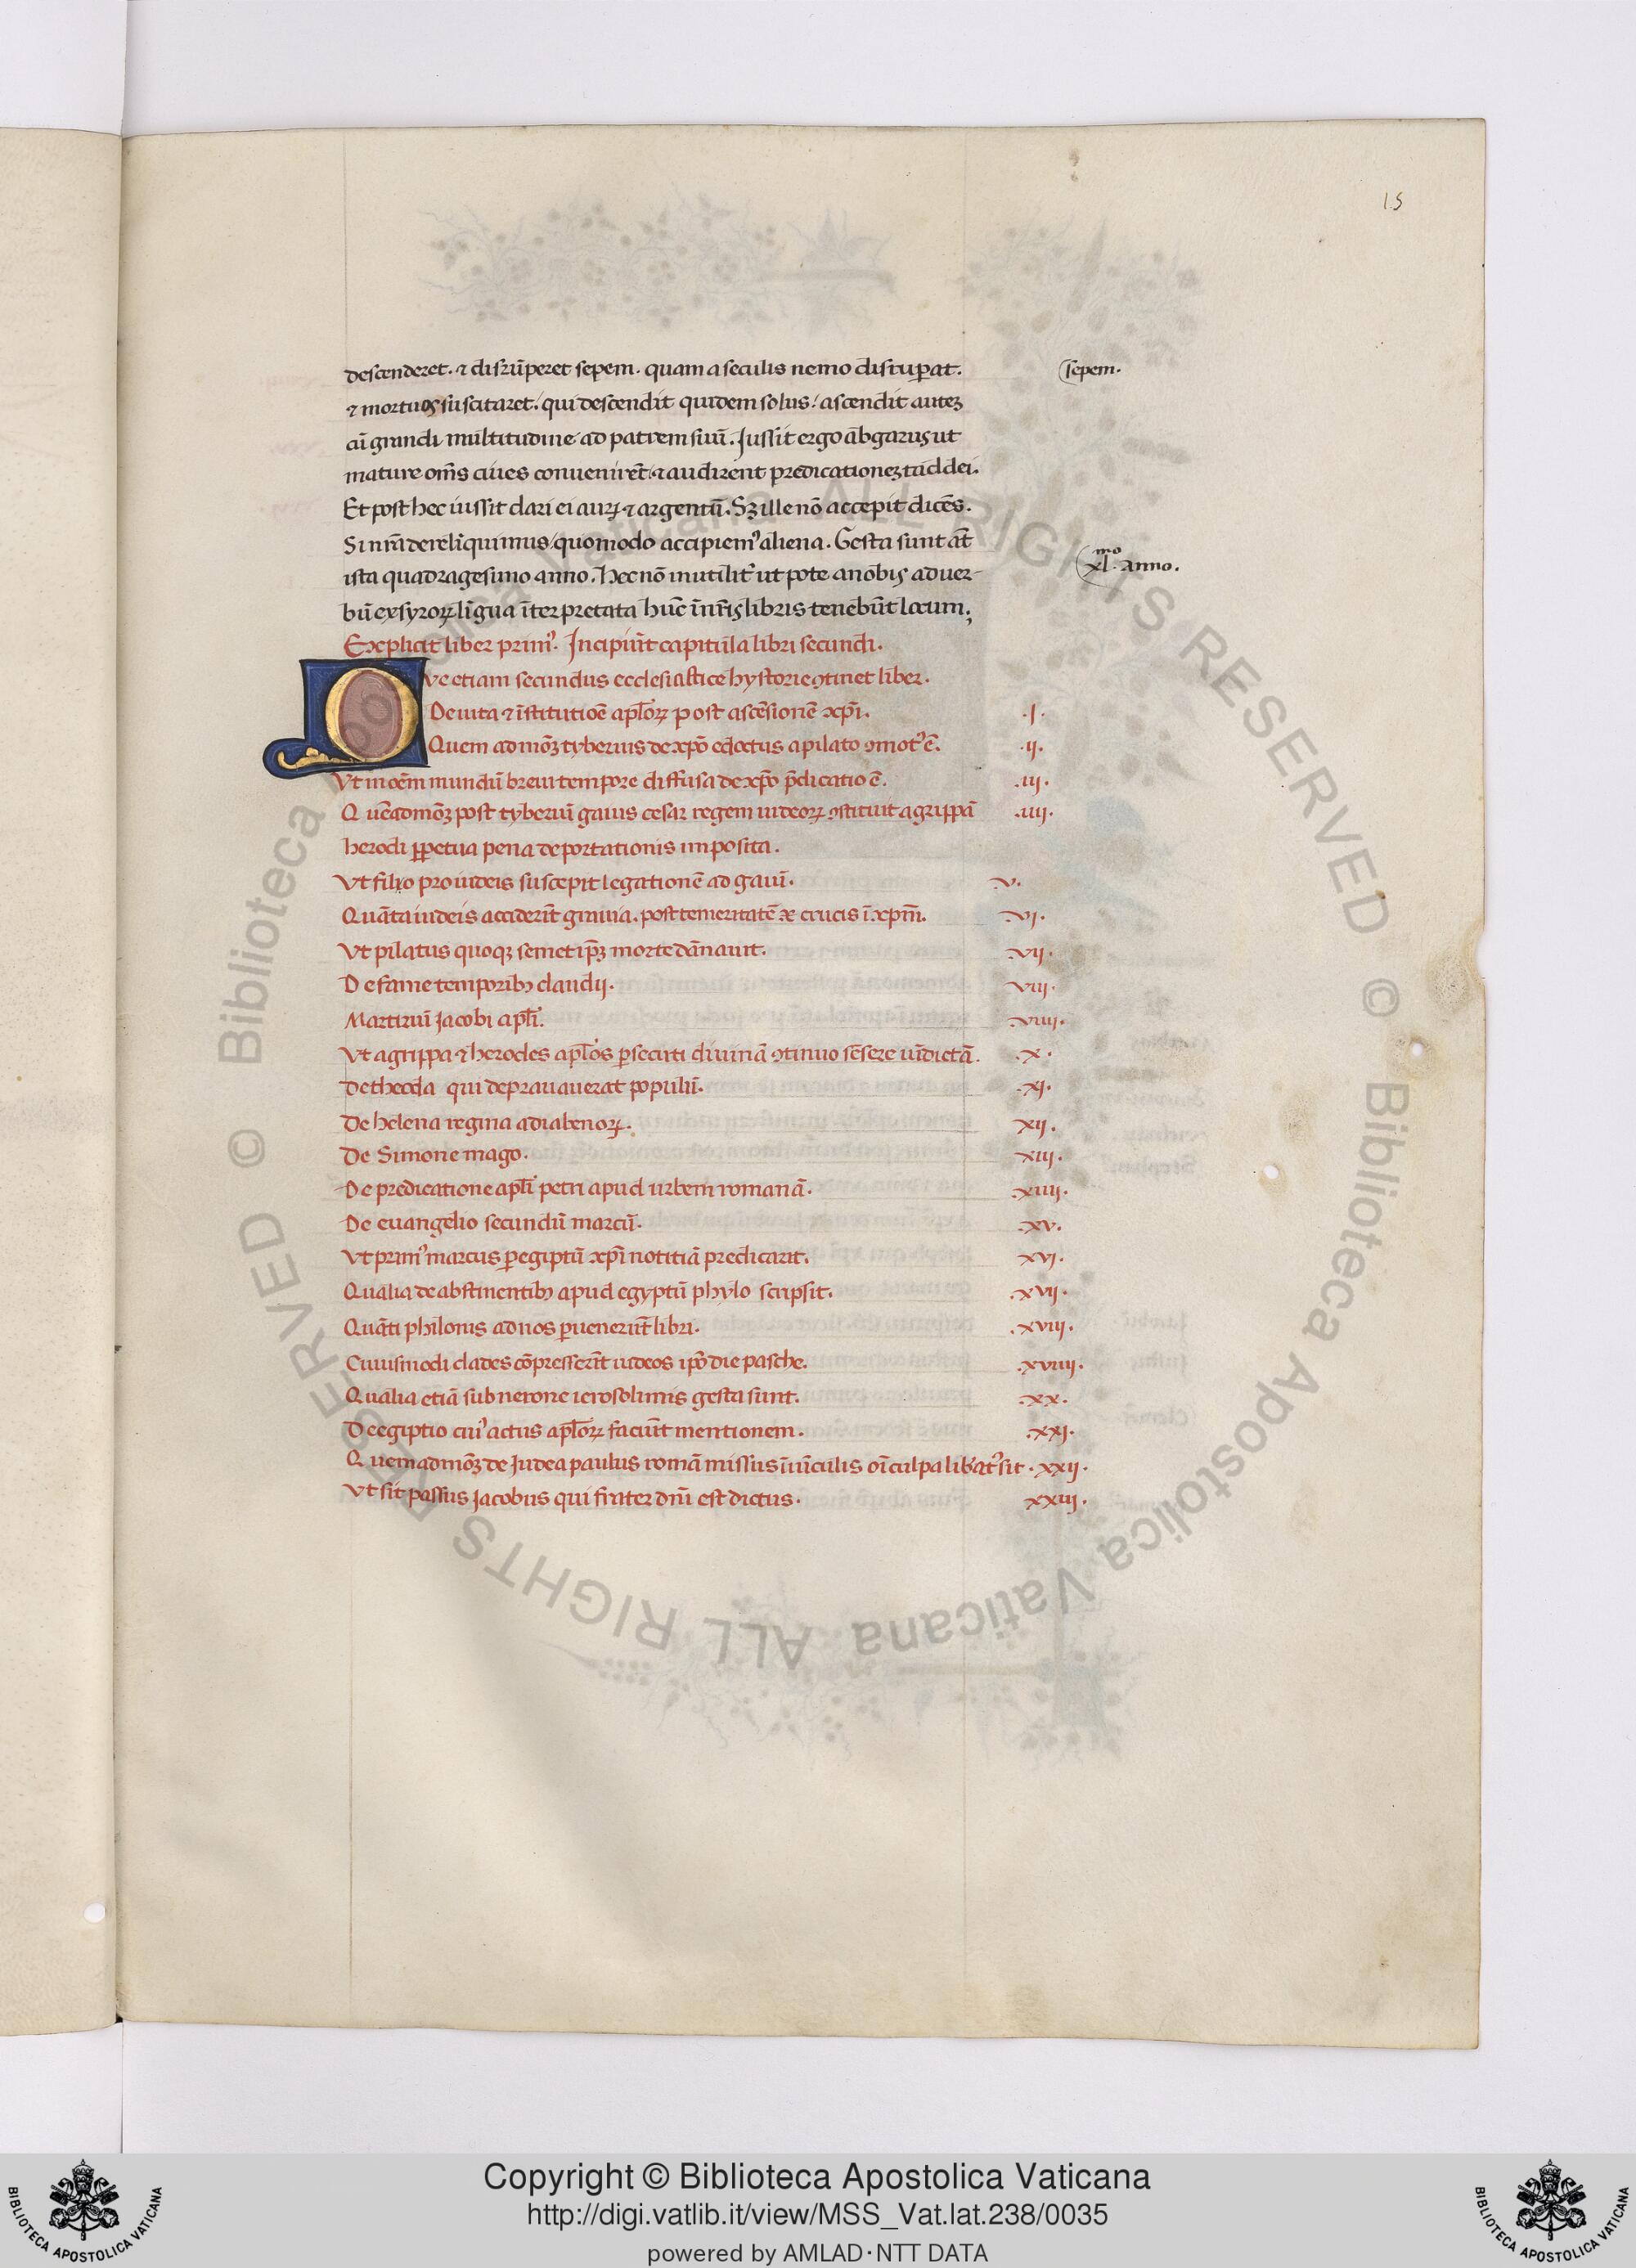 15
descenderet. ⁊ disrūperet sepem. quam a seculis nemo disruꝑat.
sepem.
⁊ mortuos suscitaret. qui descendit quidem solus: ascendit auteꝫ
cū grandi multitudine ad patrem suū. Jussit ergo abgarus ut
mature om̄s ciues conuenirēt. ⁊ audirent predicationeꝫ taddei.
Et post hec iussit dari ei auꝝ ⁊ argentū. Sꝫ ille nō accepit dicēs.
Si nr̄a dereliquimus quomodo accipiemꝰ aliena. Gesta sunt aūt
ista quadragesimo anno. Hec nō inutilit̓ ut pote a nobis ad uer-
xl.mo anno.
bū ex syroꝝ lingua īterpretata hūc ī nr̄is libris tenebūt locum.
Explicit liber primꝰ. Incipiūt capitula libri secundi.
Que etiam secundus ecclesiastice hystorie ꝯtinet liber.
De uita ⁊ īstitutiōe apl̄oꝝ post ascēsionē xp̄i. .I.
Quem admoꝫ tyberius de xp̄o edoctus a pilato ꝯmotꝰ ē. .ii.
Vt in oēm mundū breui tempore diffusa de xp̄o p̄dicatio ē. .iii.
Quēadmoꝫ post tyberiū gaius cesar regem iudeoꝝ ꝯstituit agrippā .iiii.
herodi ꝑpetua pena deportationis imposita.
Vt filxo pro iudeis suscepit legationē ad gaiū. v.
Quāta iudeis acciderīt grauia. post temeritatē ⁊ crucis ī xp̄m. vi.
Vt pilatus quoqꝫ semet ip̄ꝫ morte dānauit. vii.
De fame temporibꝫ claudii. viii.
Martiriū Jacobi apl̄i. viiii.
Vt agrippa ⁊ herodes apl̄os ꝑsecuti diuinā ꝯtinuo sēsere uīdictā. .x.
De theoda qui deprauauerat populū. .xi.
De helena regina adiabenoꝝ. xii.
De Simone mago. xiii.
De predicatione apl̄i petri apud urbem romanā. xiiii.
De euangelio secundū marcū. .xv.
Vt primꝰ marcus ꝑ egiptū xp̄i notitiā predicarit. xvi.
Qualia de abstinentibꝫ apud egyptū phylo scripsit. .xvii.
Quāti philonis ad nos ꝑuenerūt libri. .xviii.
Cuiusmodi clades cōpresserīt iudeos ip̄o die pasche. .xviiii.
Qualia etiā sub nerone ierosolimis gesta sunt. .xx.
De egiptio cuiꝰ actus apl̄oꝝ faciūt mentionem. .xxi.
Quemadmoꝫ de Judea paulus romā missus ī uīculis oī culpa lib̓atꝰ sit. xxii.
Vt sit passus Jacobus qui frater dn̄i est dictus. xxiii.
© Biblioteca Apostolica Vaticana ALL RIGHTS RESERVED
© Biblioteca Apostolica Vaticana ALL RIGHTS RESERVED
Copyright © Biblioteca Apostolica Vaticana
http://digi.vatlib.it/view/MSS_Vat.lat.238/0035
powered by AMLAD·NTT DATA
BIBLIOTECA APOSTOLICA VATICANA
BIBLIOTECA APOSTOLICA VATICANA